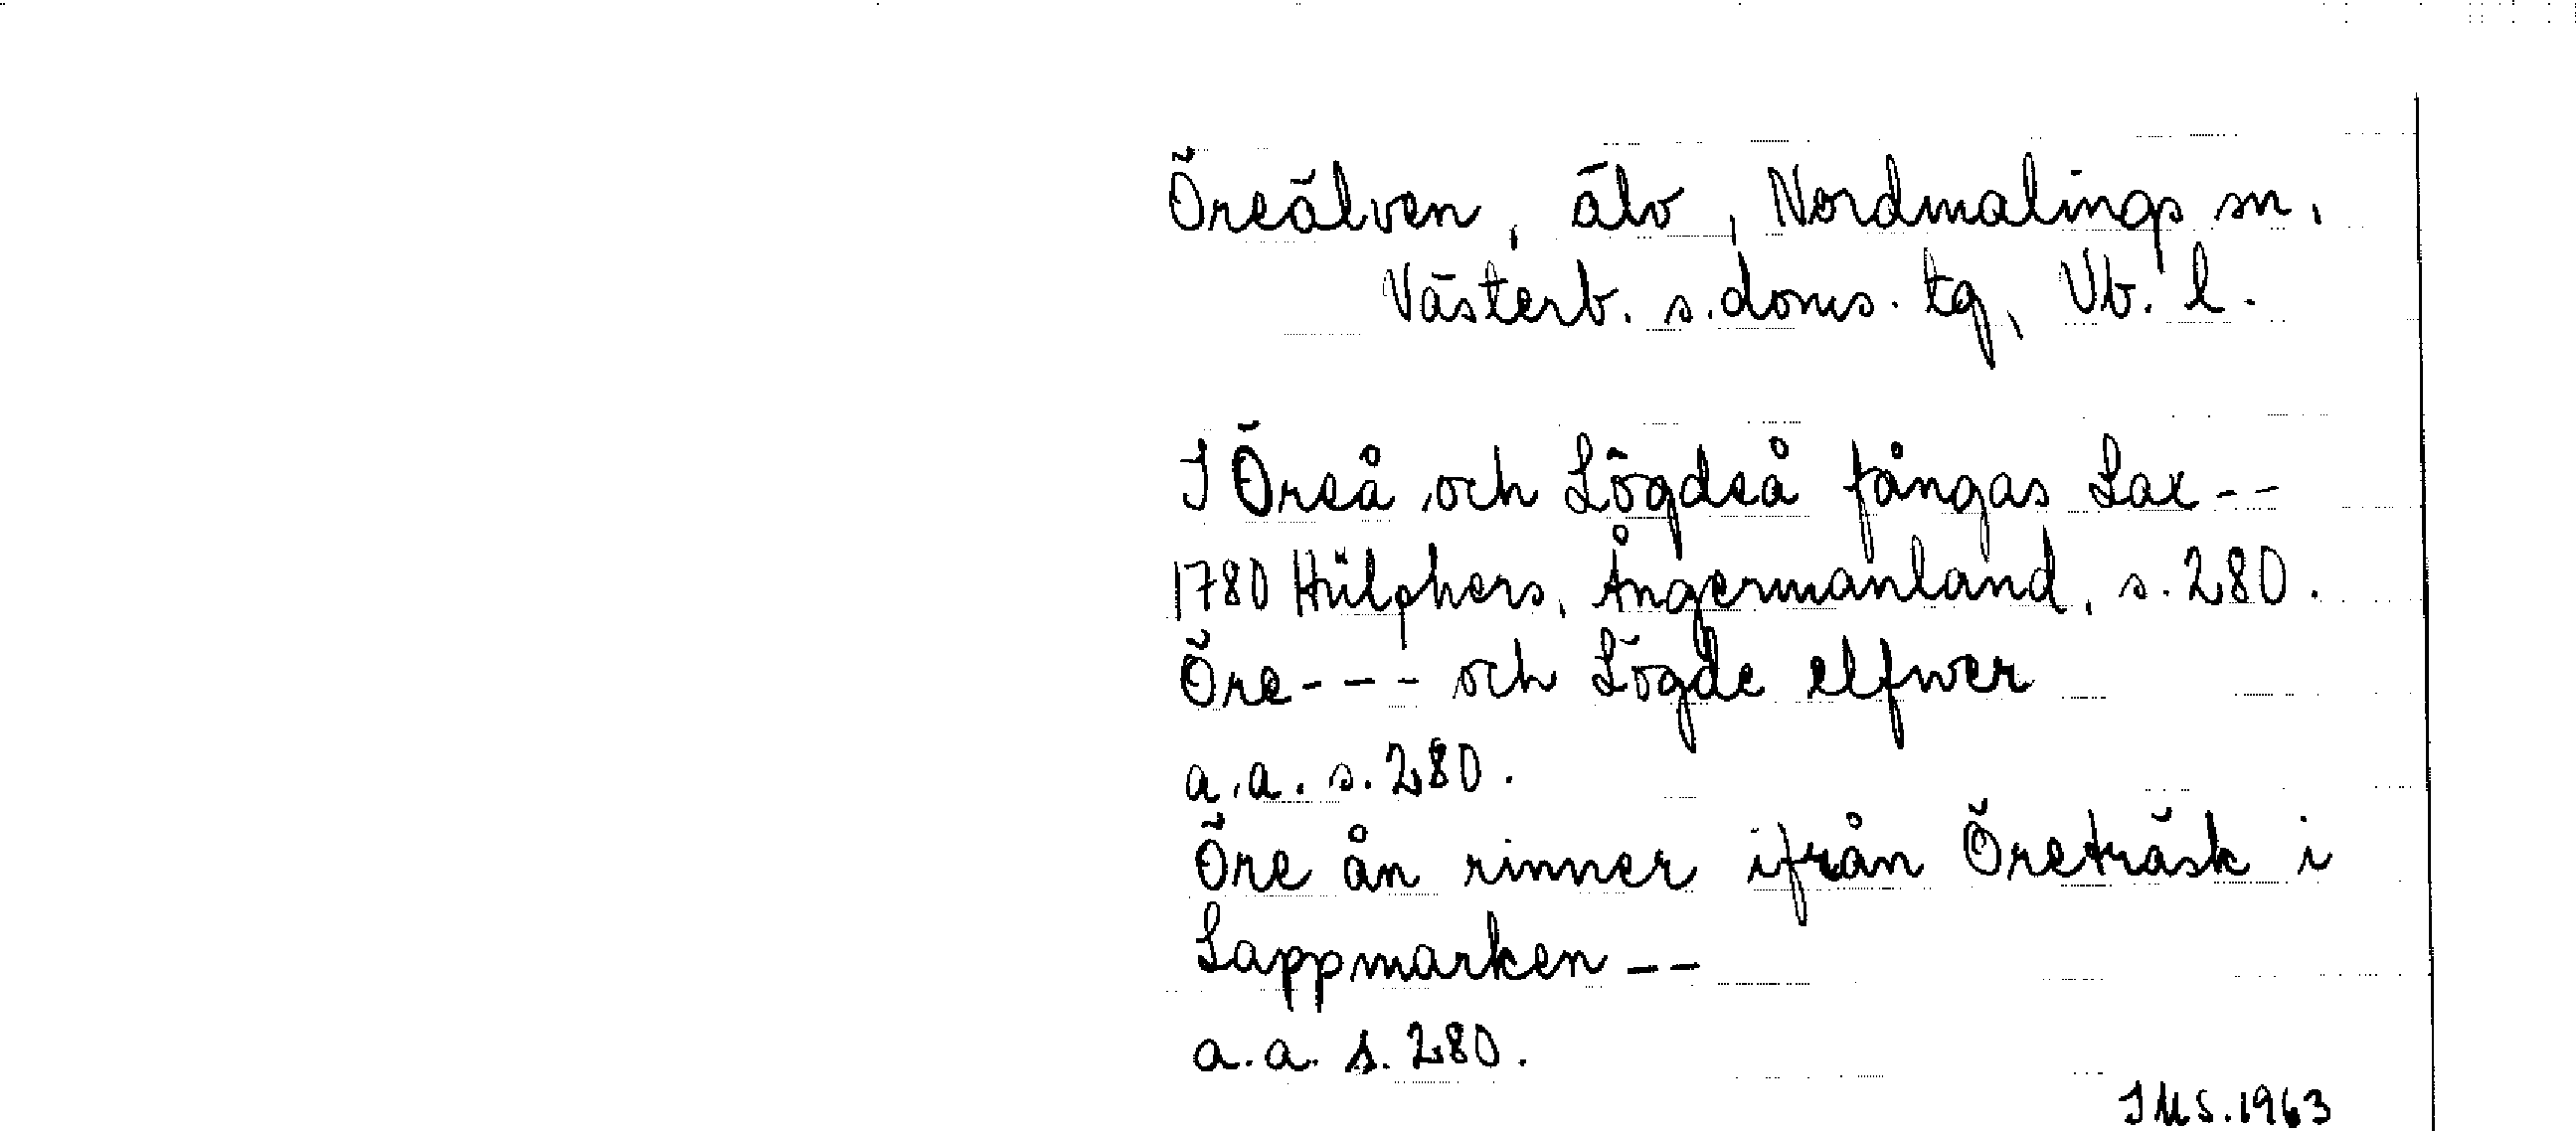 Öreälven, älv, Nordmalings sn,
Västerb. s. doms. tg, Vb. l.
I Öreå och Lögdeå fångas Lax--
1780 Hülphers, Ångermanland, s. 280.
Öre---- och Lögde elfwer
a.a. s. 280.
Öre ån rinner ifrån Öreträsk i
Lappmarken--
a.a. s. 280.
IMS. 1963